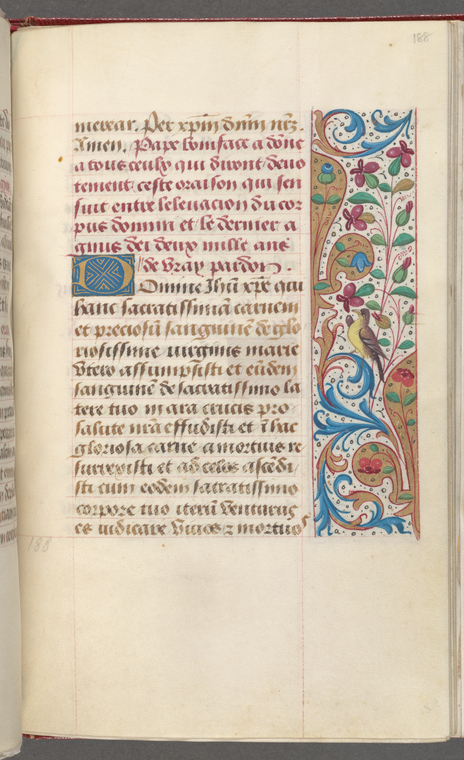 188
merear. Per xp̄m dn̄m nr̄z.
Amen. Pape boniface a dōne
a tous ceulx qui diront devo
tement ceste oraison qui sen
suit entre lelevacion du cor
pus domini et le dernier a
gnus dei deux mille ans
de vray pardon.
Domine Jhū xp̄e qui
hanc sacratissimā carnem
et preciosū sanguinē de glo
riosissime virginis marie
vtero assumpsisti et eūdem
sanguinē de sacratissimo la
tere tuo in ara crucis pro
salute nr̄a effudisti et ī hac
gloriosa carne a mortuis re
surrexisti et ad celos ascēdi
sti cum eodem sacratissimo
corpore tuo iterū venturus
es iudicare vivos ⁊ mortuos
188